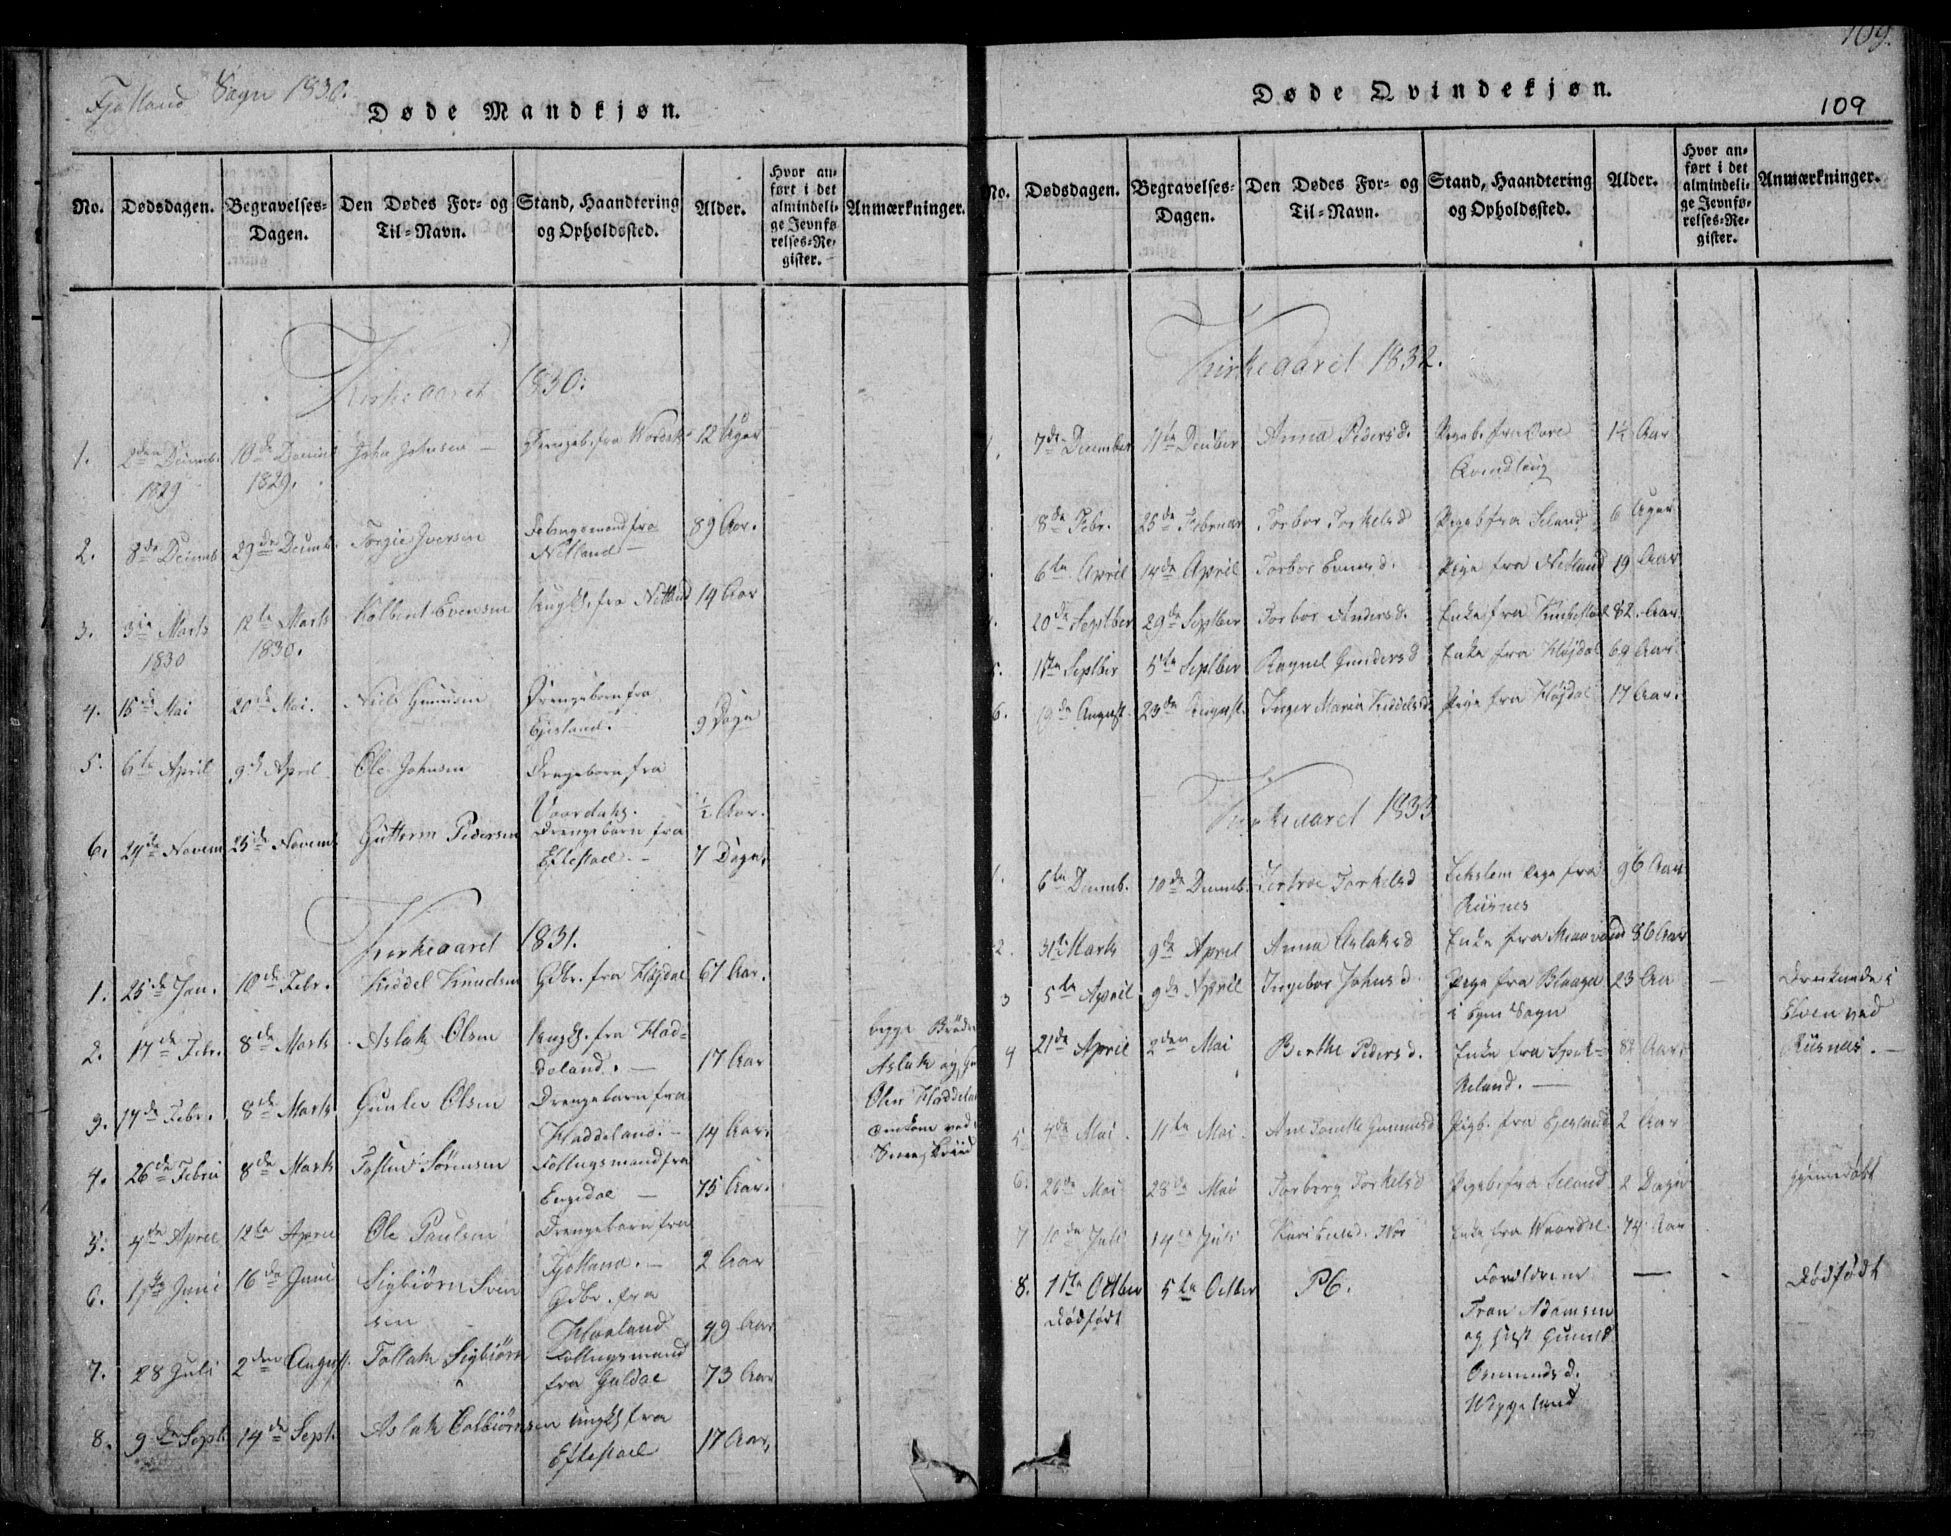 Fjotland Sogn 1830.
Døde Mandkjøn.
No. Dødsdagen. Begravelses-Dagen. Den Dødes For- og Til-Navn. Stand, Haandtering og Opholdssted. Alder. Hvor anført i det almindelige Jevnførelses-Register. Anmærkninger.
Kirkeaaret 1830.
1. 2den Decemb. 1829 10de Decemb 1829. John Johnsen – Drengeb. fra 12 Uger
2. 8de Decemb. 29de Decemb. Torgie Iversen Follugsmand fra Netland – 89 Aar.
3. 3die Marts 1830 12te Marts 1830. Kolbent Evensen Ungk. fra Netland 14 Aar
4. 15de Mai 20de Mai. Niels Drengebarn fra Ejesland. 9 Dage
5. 6te April 9de April Ole Johnsen Drengebarn fra Vaardahs. ½ Aar.
6. 24de Novem 25de Novemb. Gutterm Pedersen Drengebarn fra Eftestoel. – 7 Dage.
Kirkeaaret 1831.
1. 25de Jan. 10de Febr. Kiddel Knudsen Gdbr. fra Højdal 67 Aar.
2. 17de Febr. 8de Marts Aslak Olsen Ungk. fra Haddeland. – 17 Aar begge Brødre
3. 17de Febr. 8de Marts Gunler Olsen Drengebarn fra Haddeland. – 14 Aar. Aslak og
Olsen Haddeland
omkom ved
4. 26de Febru 8de Marts Sørensen Follugsmand fra Engedal – 75 Aar.
5. 4de April 12te April Ole Paulsen Drengebarn fra Fjotland. – 2 Aar
6. 1ste Juni 16de Juni Sigbiørn Svensen Gdbr. fra Haaland 49 Aar
7. 28 Juli 2den August. Tollak Sigbiørn Follugsmand fra Guldal 73 Aar
8. 9de Sept. 14de Sept. Aslak Ungk fra Eftestoel 17 Aar.
109.
Døde Qvindekjøn.
109
No. Dødsdagen. Begravelses-Dagen. Den Dødes For- og Til-Navn. Stand, Haandtering og Opholdssted. Alder. Hvor anført i det almindelige Jevnførelses-Register. Anmærkninger.
Kirkeaaret 1832.
1. 7de December 11te December Anna Pedersd. Pigeb. fra Øvre Qvindloug 1½ Aar
8de Febr. 25de Februar Torbor Torkelsd Pigeb fra Seland 6 Uger
6te April 14de April Torbor Evensd. Pige fra Netland 19 Aar
20de Septber 29de Septber Torbor Andersd. Enke fra 82. Aar.
5. 1ste Septber 5te Septber Ragnel Gundersd Enke fra Højdal 69 Aar
6. 19de August. 23de August. Inger Maria Kiddelsd. Pige fra Højdal 17 Aar.
Kirkeaaret 1833
1. 6te Decemb. 10de Decemb. Torkelsd Pige fra Risnes 96 Aar
2. 31te Marts 9de April Anna Aslaksd Enke fra 86 Aar
3 5te April 9de April Ingebor Johnsd. Pige fra i Sogn 23 Aar – Druknede i
Elven ved
Risnes. –
4 21de April 2den Mai Berthe Pedersd. Enke fra 82 Aar.
5 4de Mai. 11te Mai. Ane Tonette Gunnufsd Pigb. fra Ejesland 2 Aar
6. 26de Mai 28de Mai Torborg Torkelsd Pigeb. fra Seland 2 Dage hjemmedøbt
7 10de Juli 14de Juli Kari Enke fra 74 Aar
8. 1ste Octber dødfødt 5te Octber P6. Forældrene
Tron Adamsen
og Hust Gunild
Omundsd.
– – Dødfødt